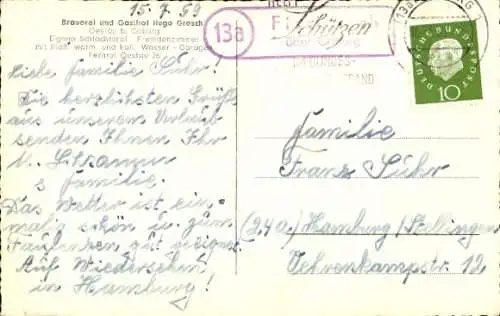 15. 7. 59
Brauerei und Gasthof Hugo Grosch
Oeslau b. Coburg
Eigene Schlachterei Fremdenzimmer
mit fließ. warm. und kalt. Wasser - Garagen
Fernruf Oeslau
13a
Schützen
10
DEUTSCHE BUNDESPOST
Liebe Familie Suhr!
Die herzlichsten Grüße
aus unserem Urlaub
senden Ihnen Ihr
u. Familie.
Das Wetter ist ein-
malig schön u. zum
Faulenzen gut geeignet.
Auf Wiedersehen
in Hamburg!
Familie
Franz Suhr
(24a) Hamburg/Stellingen
Vehrenkampstr. 12